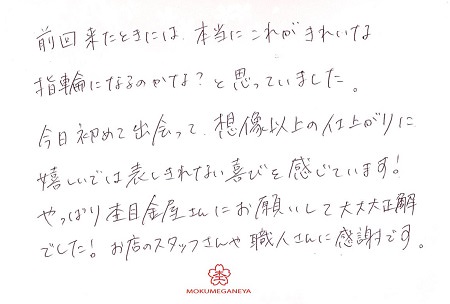 前回来たときには、本当にこれがきれいな
指輪になるのかな?と思っていました。
今日初めて出会って、想像以上の仕上がりに
嬉しいでは表しきれない喜びを感じています!
やっぱり杢目金屋さんにお願いして大大大正解
でした!お店のスタッフさんや職人さんに感謝です。
杢
MOKUMEGANEYA